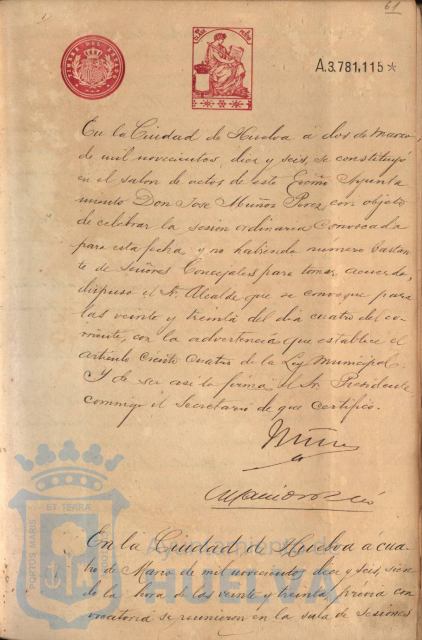 61
TIMBRE DEL ESTADO
A.3.781,115*
En la Ciudad de Huelva á dos de Marzo
de mil novecientos, diez y seis, se constituyó
en el salon de actos de este Excmo Ayunta
miento Don Jose Muñoz Perez con objeto
de celebrar la sesion ordinaria convocada
para esta fecha y no habiendo numero bastan
te de Señores Concejales para tomar acuerdo,
dispuso el Sr. Alcalde que se convoque para
las veinte y treinta del dia cuatro del co-
rriente, con la advertencia que establece el
articulo ciento cuatro de la Ley Municipal.
Y de ser asi lo firma el Sr. Presidente
conmigo el Secretario de que certifico.
Muñoz
En la Ciudad de Huelva a cua
tro de Marzo de mil novecientos, diez y seis, sien
do la hora de las veinte y treinta, previa con
vocatoria se reunieron en la sala de sesiones
Ayuntamiento de
HUELVA
PORTUS MARIS
ET TERRA